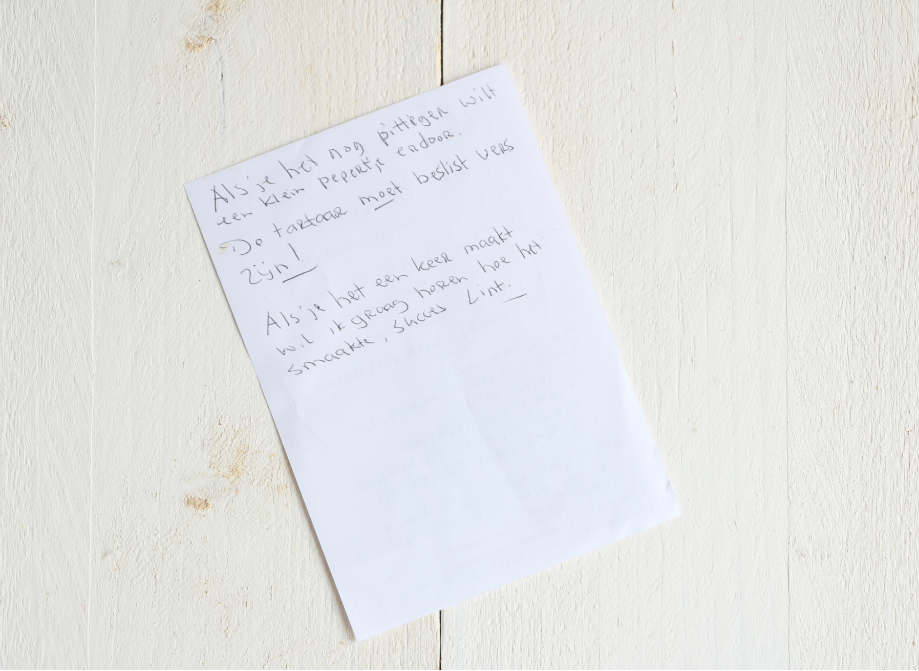 Als je het nog pittiger wilt
een klein pepertje erdoor.
De tartaar moet beslist vers
zijn!
Als je het een keer maakt
wil ik graag horen hoe het
smaakte, succes Lint.